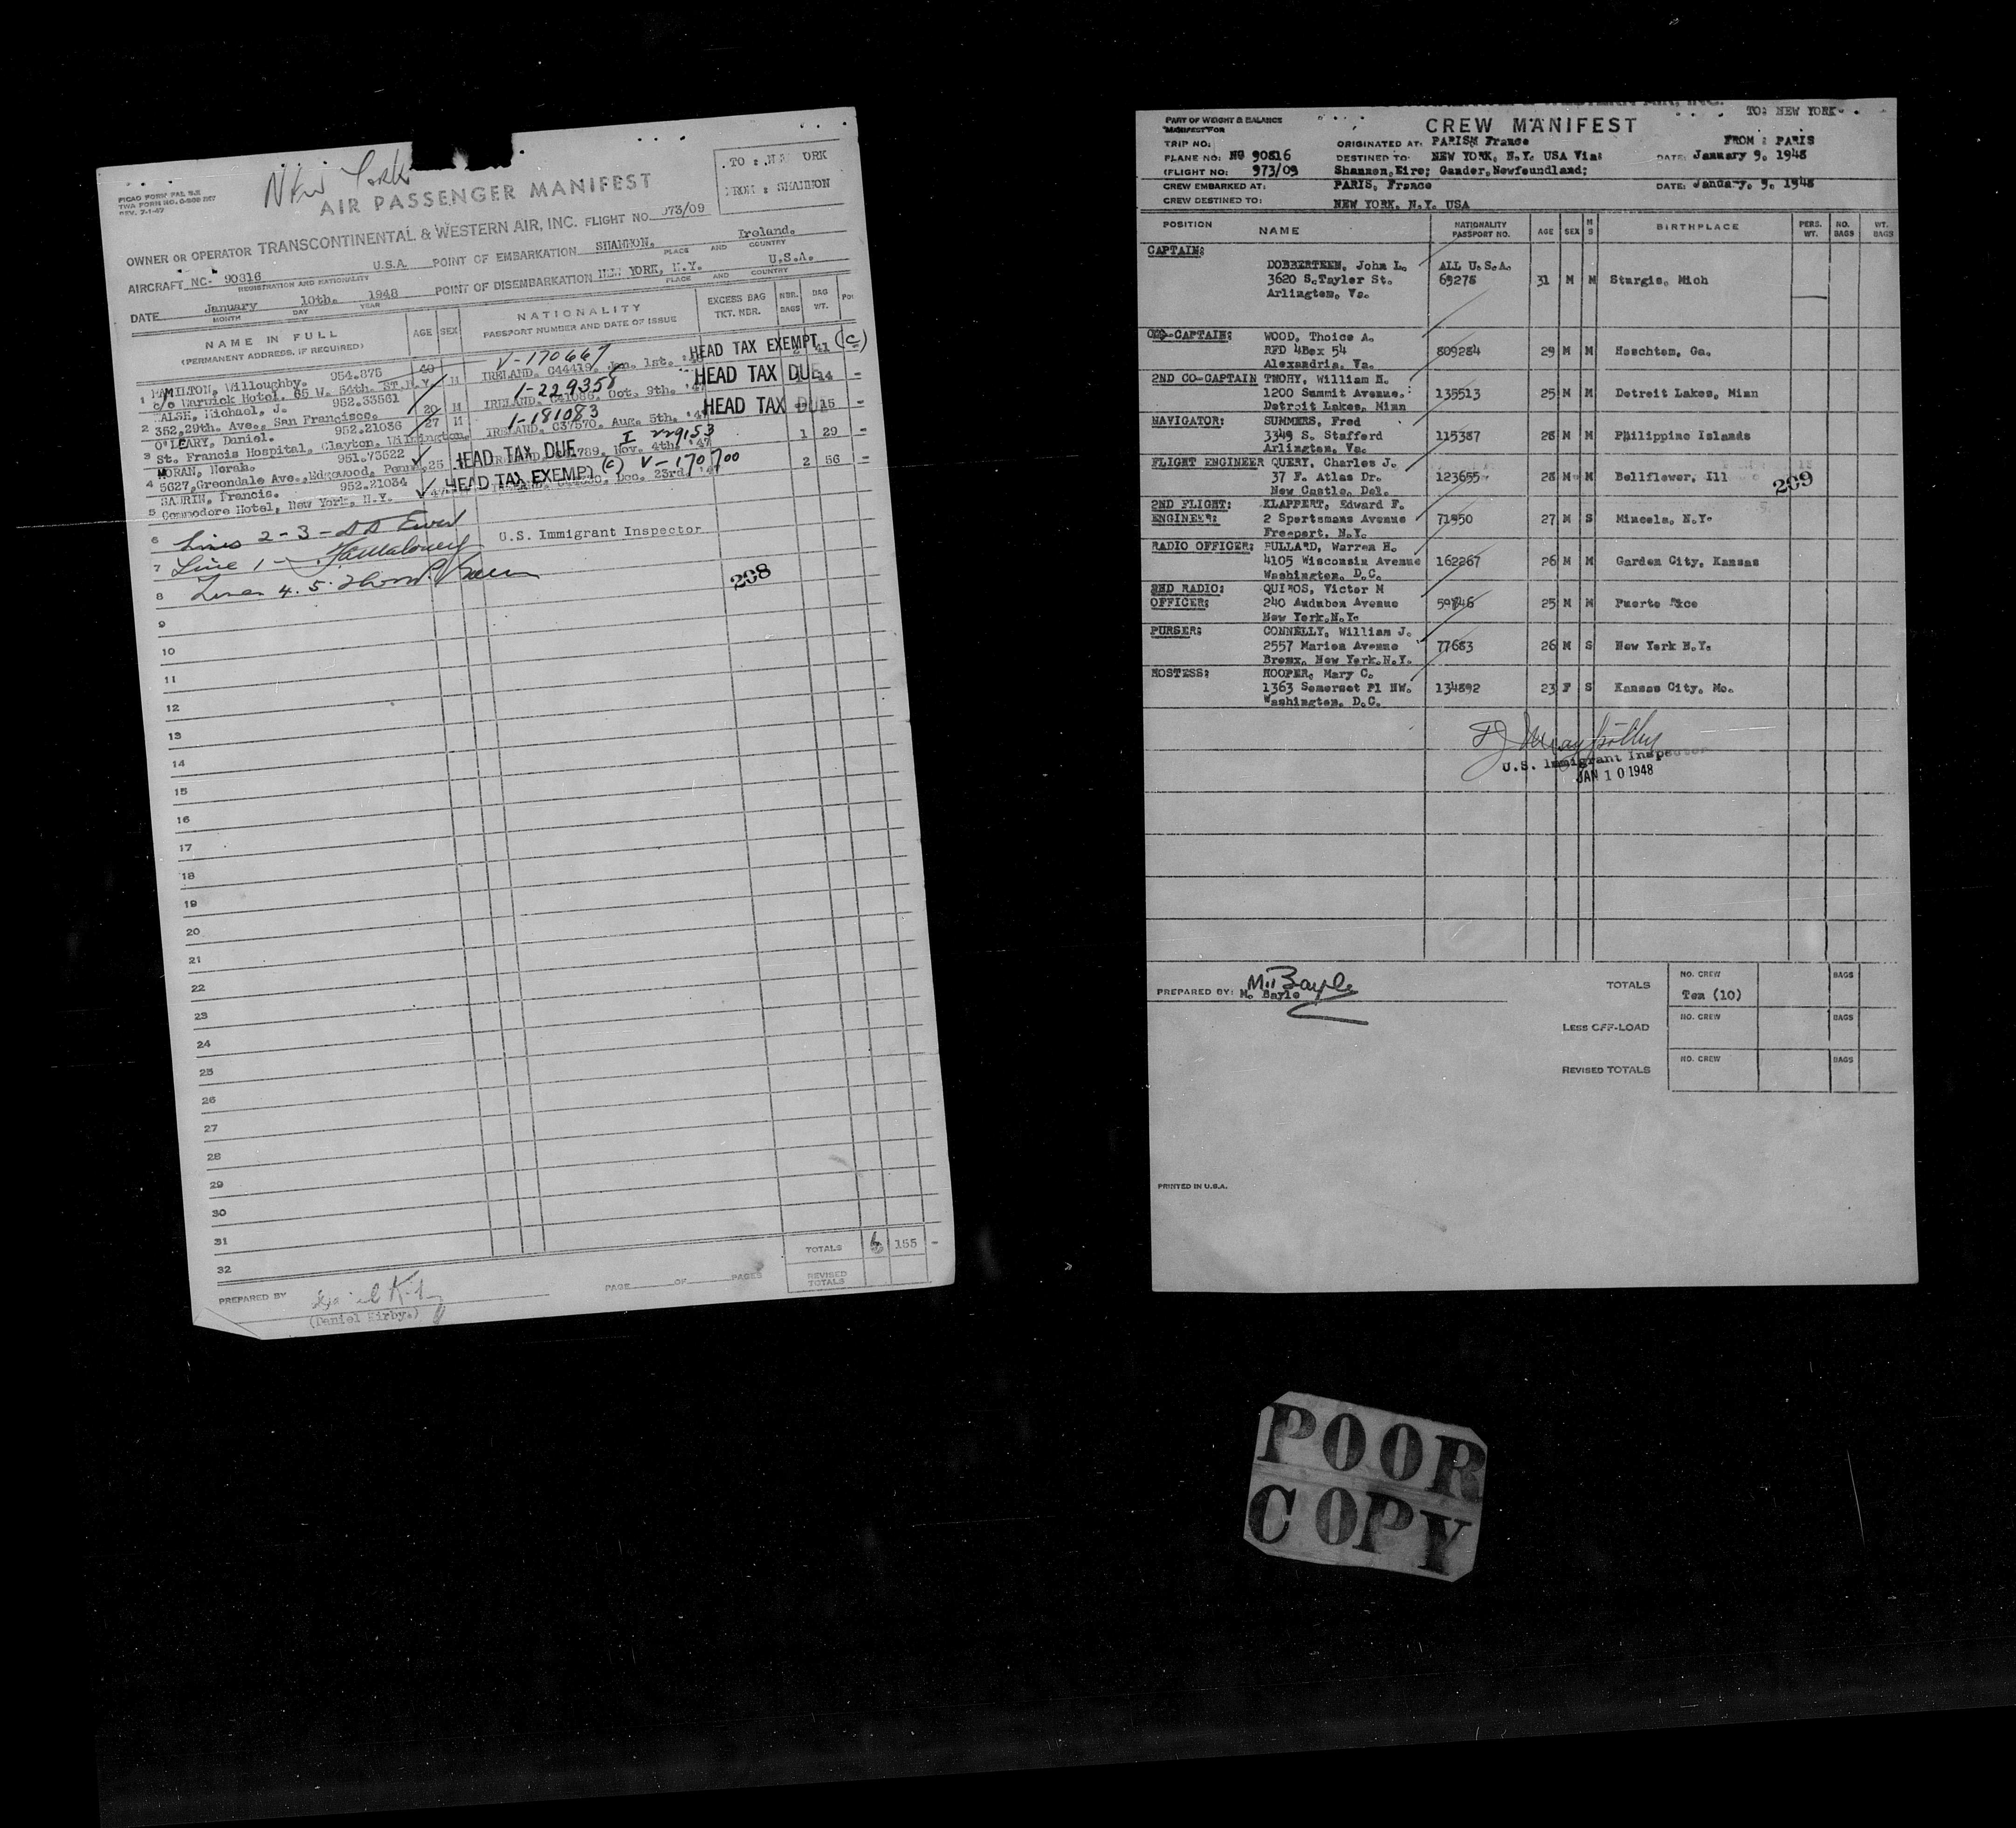 New York
AIR PASSENGER MANIFEST
TO : NEW YORK
FROM : SHANNON
PICAO FORM PAL 2-2
TWA FORM NO. O-908 INT
REV. 7-1-47
OWNER OR OPERATOR TRANSCONTINENTAL & WESTERN AIR, INC. FLIGHT NO. 973/09
AIRCRAFT NC- 90816 U.S.A. POINT OF EMBARKATION SHANNON. Ireland.
REGISTRATION AND NATIONALITY PLACE AND COUNTRY
DATE January 10th. 1948 POINT OF DISEMBARKATION NEW YORK, N.Y. U.S.A.
MONTH DAY YEAR PLACE AND COUNTRY
NAME IN FULL AGE SEX NATIONALITY EXCESS BAG NBR. BAG
(PERMANENT ADDRESS, IF REQUIRED) PASSPORT NUMBER AND DATE OF ISSUE TKT. NBR. BAGS WT.
V-170667 HEAD TAX EXEMPT (C)
HAMILTON, Willoughby. 954.875 40 IRELAND. C44419. Jan. 1st. 41
1 c/o Warwick Hotel. 65 W. 54th. ST.N.Y. M 1-229358 HEAD TAX DUE
WALSH, Michael, J. 952.33561 20 M IRELAND. Oct. 9th. '47 14 -
2 352,29th. Ave., San Francisco. 1-181083 HEAD TAX DUE
O'LEARY, Daniel. 952.21036 27 M IRELAND. C37570. Aug. 5th. '47 15 -
3 St. Francis Hospital, Clayton, Wilmington. I 229153
MORAN, Norah. 951.73522 25 HEAD TAX DUE 789. Nov. 4th. '47 1 29 -
4 5627,Greondale Ave.,Edgewood, Penna. HEAD TAX EXEMPT (C) V-170700
Francis. 952.21034 Dec. 23rd. 2 56 -
5 Commodore Hotel, New York, N.Y.
6 Lines 2 - 3 -
U.S. Immigrant Inspector
7 Line 1 -
8 Lines 4. 5.
208
9
10
11
12
13
14
15
16
17
18
19
20
21
22
23
24
25
26
27
28
29
30
31
32
TOTALS 6 155 -
REVISED TOTALS
PREPARED BY
PAGE OF PAGES
(Daniel Kirby.)
TO: NEW YORK
PART OF WEIGHT & BALANCE
MANIFEST FOR
CREW MANIFEST
TRIP NO: ORIGINATED AT: PARISM France FROM : PARIS
PLANE NO: NC 90816 DESTINED TO: NEW YORK, N.Y. USA Via: DATE: January 9. 1948
(FLIGHT NO: 973/09 Shannon,Eire; Gander,Newfoundland;
CREW EMBARKED AT: PARIS, France DATE: January. 9. 1948
CREW DESTINED TO: NEW YORK. N.Y. USA
POSITION NAME NATIONALITY PASSPORT NO. AGE SEX M S BIRTHPLACE PERS. WT. NO. BAGS WT. BAGS
CAPTAIN:
DOBBERTEEN, John L. ALL U.S.A.
3620 S.Taylor St. 69278 31 M M Sturgis, Mich
Arlington, Va.
CO-CAPTAIN: WOOD, Thoice A.
RFD 4Box 54 809284 29 M M Hoschton, Ga.
Alexandria, Va.
2ND CO-CAPTAIN TMORY, William H.
1200 Summit Avenue. 135513 25 M M Detroit Lakes, Minn
Detroit Lakes, Minn
NAVIGATOR: SUMMERS, Fred
3349 S. Stafford 115387 28 M M Philippine Islands
Arlington, Va.
FLIGHT ENGINEER QUERY, Charles J.
37 F. Atlas Dr. 123655 28 M M Bellflower, Ill
New Castle, Del.
209
2ND FLIGHT: KLAPPERT, Edward F.
ENGINEER: 2 Sportsmans Avenue 71950 27 M S Mineola, N.Y.
Freeport, N.Y.
RADIO OFFICER: BULLARD, Warren H.
4105 Wisconsin Avenue 162267 26 M M Garden City, Kansas
Washington, D.C.
2ND RADIO: QUIROS, Victor M
OFFICER: 240 Audubon Avenue 25 M M Puerto Rico
New York.N.Y.
PURSER: CONNELLY, William J.
2557 Marion Avenue 77683 26 M S New York N.Y.
Bronx, New York.N.Y.
HOSTESS: HOOPER, Mary C.
1363 Somerset Pl NW. 134892 23 F S Kansas City, Mo.
Washington, D.C.
U.S. Immigrant Inspector
JAN 10 1948
PREPARED BY: M. Bayle
M. Bayle
TOTALS NO. CREW BAGS
Ten (10)
LESS OFF-LOAD NO. CREW BAGS
REVISED TOTALS NO. CREW BAGS
PRINTED IN U.S.A.
POOR
COPY